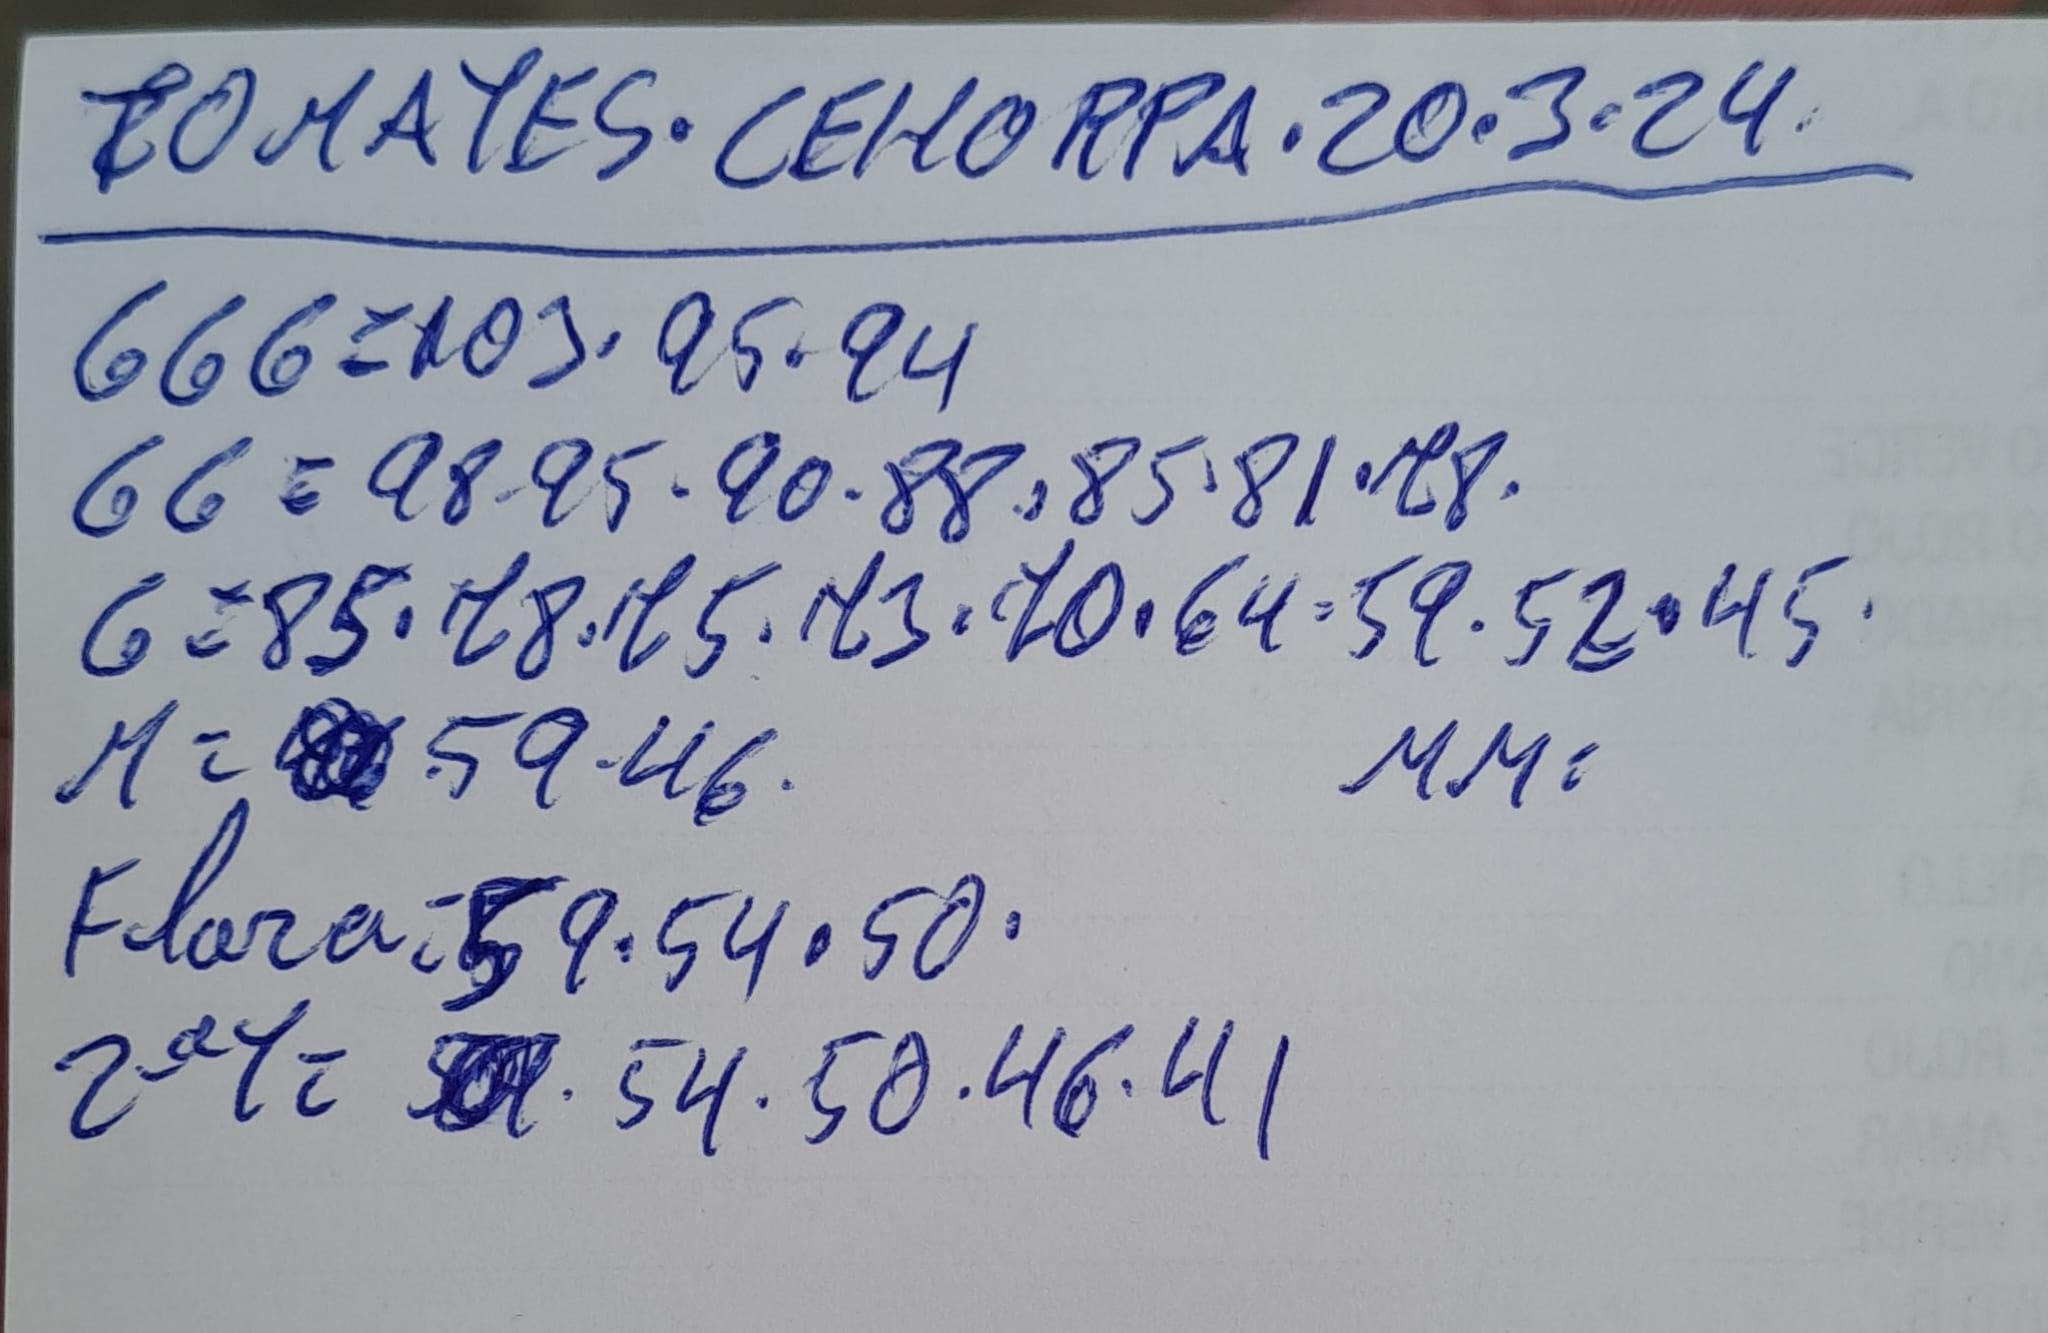 TOMATES. CEHORPA. 20.3.24.
GGG = 103. 95. 94
GG = 98. 95. 90. 88. 85. 81. 78.
G = 85. 78. 75. 73. 70. 64. 59. 52. 45.
M = 59. 46. MM =
Flora = 59. 54. 50.
2ªY = 54. 50. 46. 41